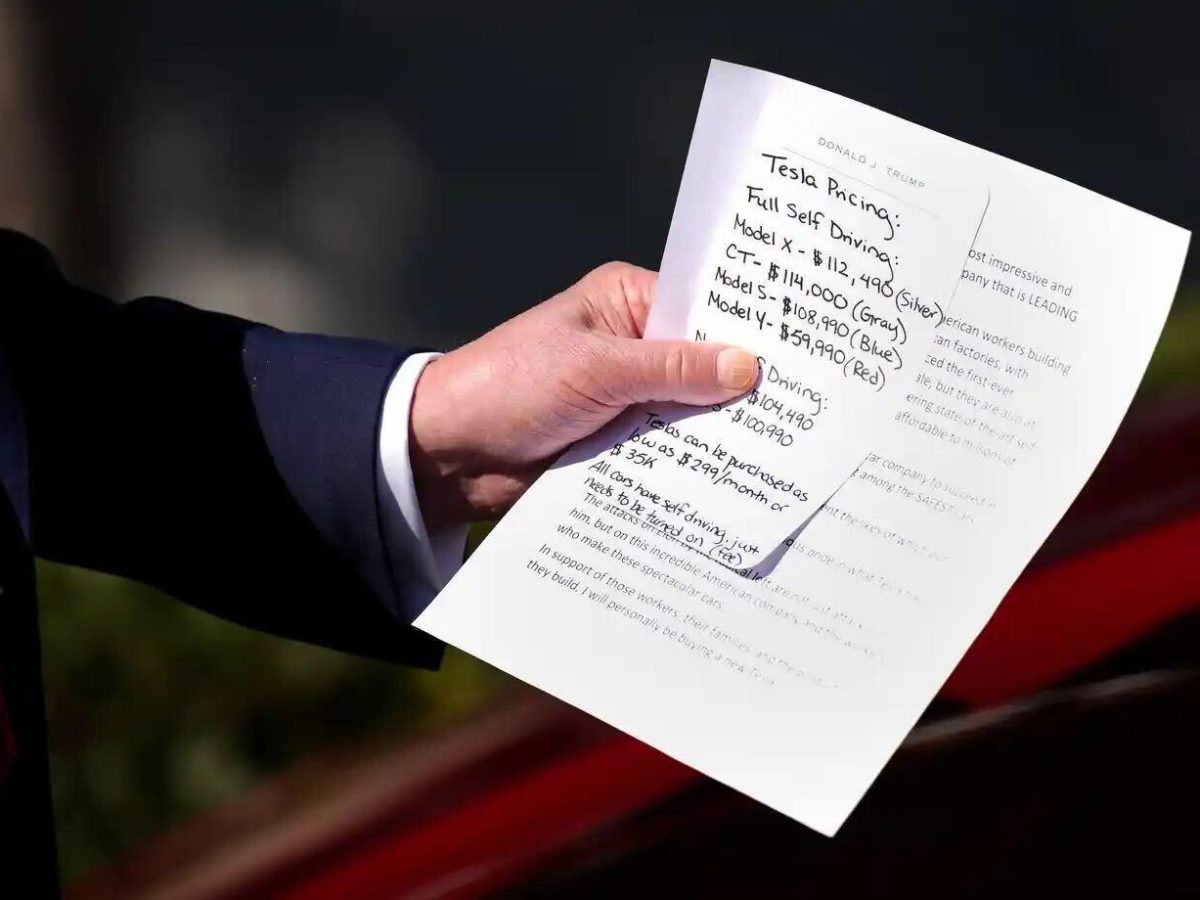 DONALD J. TRUMP
Tesla Pricing:
Full Self Driving:
Model X - $112,490 (Silver)
CT - $114,000 (Gray)
Model S - $108,990 (Blue)
Model Y - $59,990 (Red)
Driving:
$104,490
S - $100,990
Teslas can be purchased as
low as $299/month or
$35K
All cars have self driving, just
needs to be turned on (fee)
ost impressive and
pany that is LEADING
erican workers building
an factories, with
ced the first-ever
ale, but they are also at
ering state-of-the-art self-
affordable to millions of
ar company to succeed in
among the SAFEST
ent the likes of which
pride in what
The attacks on left are not just
him, but on this incredible American company, and the workers
who make these spectacular cars.
In support of those workers, their families, and the
they build, I will personally be buying a new Tesla